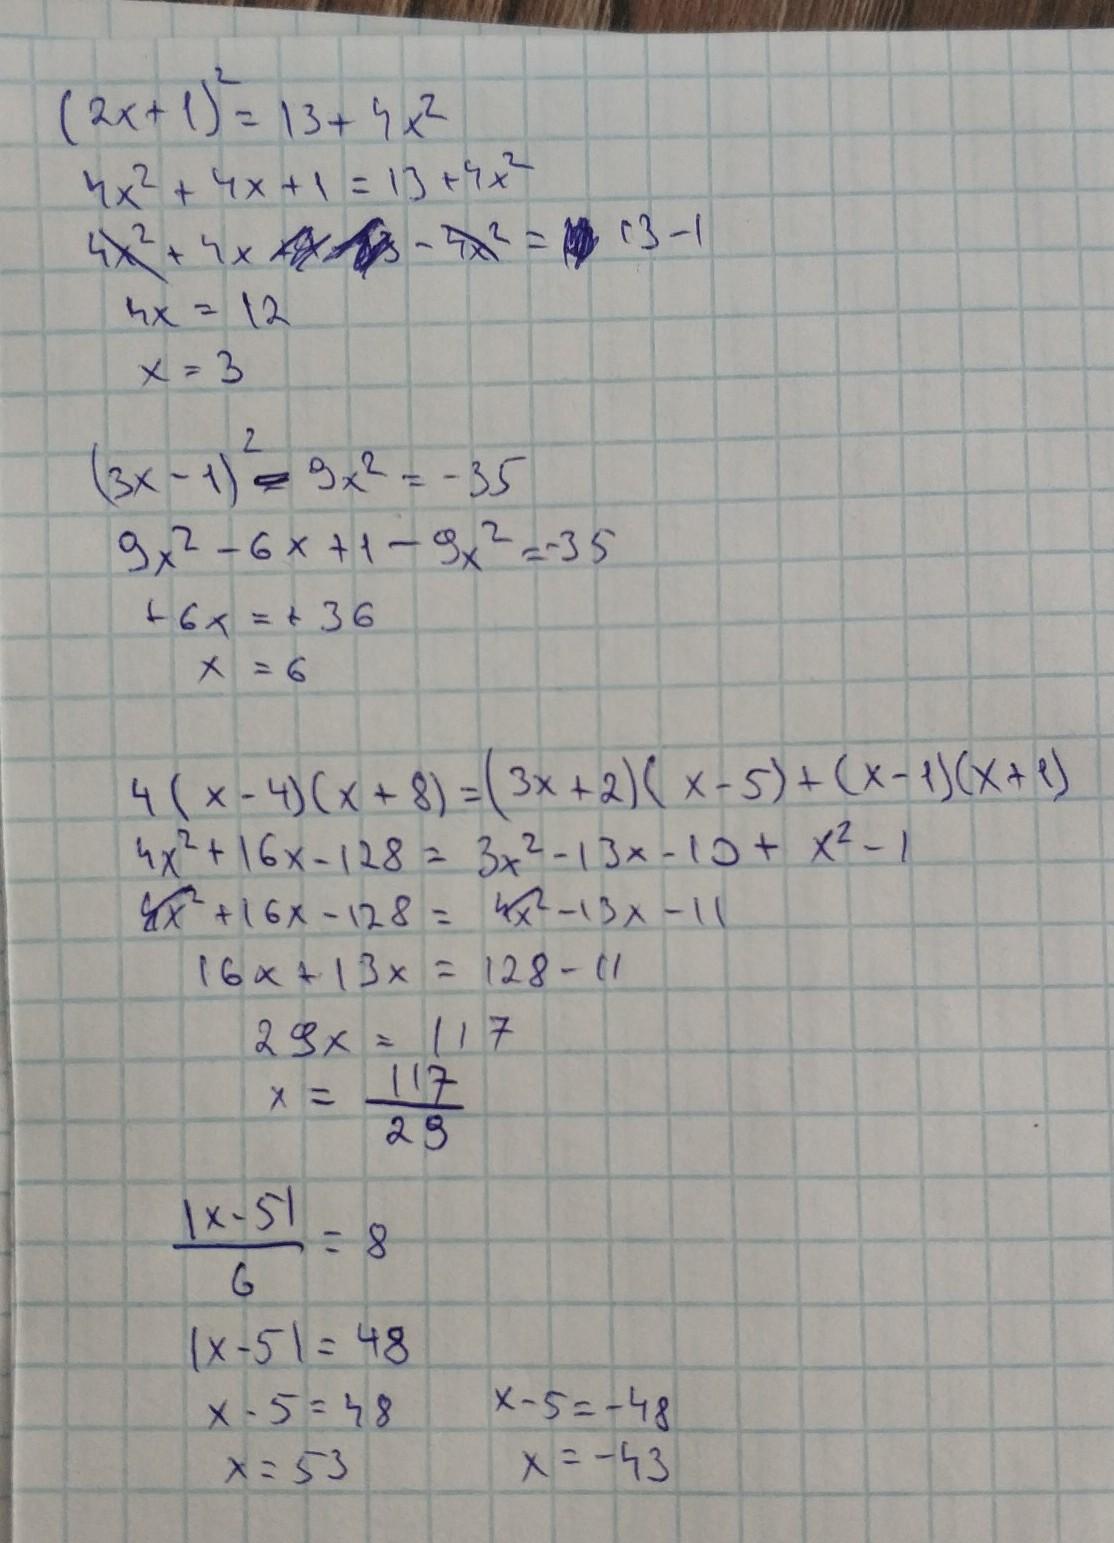 (2x+1)² = 13 + 4x²
4x² + 4x + 1 = 13 + 4x²
4x² + 4x - 4x² = 13 - 1
4x = 12
x = 3
(3x - 1)² - 9x² = -35
9x² - 6x + 1 - 9x² = -35
+6x = +36
x = 6
4(x - 4)(x + 8) = (3x + 2)(x - 5) + (x - 1)(x + 1)
4x² + 16x - 128 = 3x² - 13x - 10 + x² - 1
4x² + 16x - 128 = 4x² - 13x - 11
16x + 13x = 128 - 11
29x = 117
x = 117/29
|x - 5|/6 = 8
|x - 5| = 48
x - 5 = 48    x - 5 = -48
x = 53    x = -43